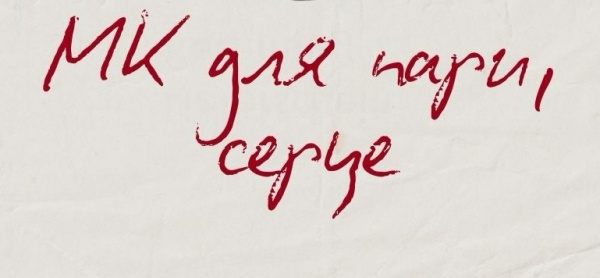 МК для пари,
серце